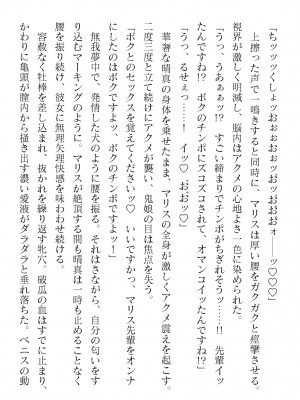 「ちッッッくしょッおぉぉぉおッおぉぉぉォ　ッ♡♡♡」
上擦った声で一鳴きすると同時に、マリスは厚い腰をガクガクと痙攣させる。
視界が激しく明滅し、脳内はアクメの心地よさ一色に染められた。
「うっ、うあぁッッ!?　すごい締まりでチンポがちぎれそうッ……!!　先輩イッ
たんですね!?　ボクのチンポにズコズコされて、オマンコイッたんですね!?」
「うっ……!!　るせぇッ♡　イッ♡　おおッ♡」
華奢な晴真の身体を乗せたまま、マリスの全身が激しくアクメ震えを起こす。
二度三度と立て続けにアクメが襲い、鬼娘の目は焦点を失う。
「ボクとのセックスを覚えてくださいッ♡　いいですかっ、マリス先輩をオンナ
にしたのはボクですよッ!!　ボクのチンポですよッ!」
無我夢中で、発情した犬のように腰を振る。それはさながら、自分の匂いをす
り込むマーキングのように。マリスが絶頂する間も晴真は一時も止めることなく
腰を振り続け、彼女に無理矢理快感を味わわせ続ける。
容赦なく牡棒を差し込まれ、抜かれを繰り返す牝穴。破瓜の血はすでに止まり、
かわりに亀頭が膣内から掻き出す濃い愛液がダラダラと垂れ落ちた。ペニスの動